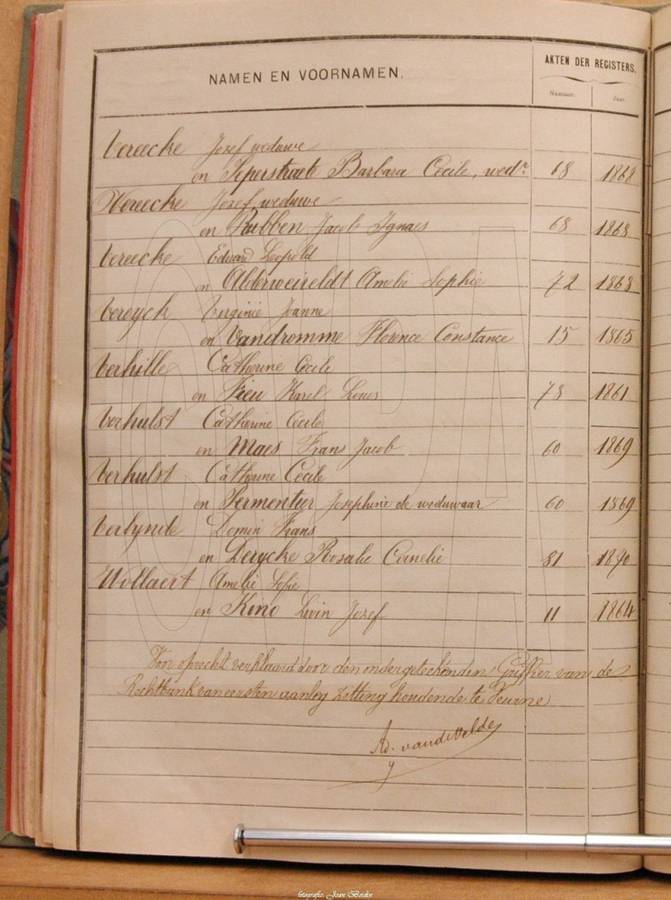 NAMEN EN VOORNAMEN.
AKTEN DER REGISTERS.
Nummer. Jaar.
Vereecke Jozef weduwe
en Peperstraete Barbara Cecile, wedr 68 1868
Vereecke Jozef, weduwe
en Rubben Jacob Ignaes 68 1868
Vereecke Eduard Leopold
en Alderweireldt Amelie Sophie 72 1863
Vereyck Virginie Joanne
en Vandromme Florence Constance 15 1865
Verhille Catherine Cecile
en Fieu Karel Louis 78 1861
Verhulst Catherine Cecile
en Maes Frans Jacob 60 1869
Verhulst Catherine Cecile
en Permentier Josephine de weduwaar 60 1869
Verlynde Domin Frans
en Derycke Rosalie Cornelie 81 1870
Vollaert Amelie Sofie
en Kino Livin Jozef 11 1864
Voor oprecht verklaard door den ondergeteekenden Griffier van de
Rechtbank van eersten aanleg zitting houdende te Veurne
Ad. vandeVelde
fotografie: Joan